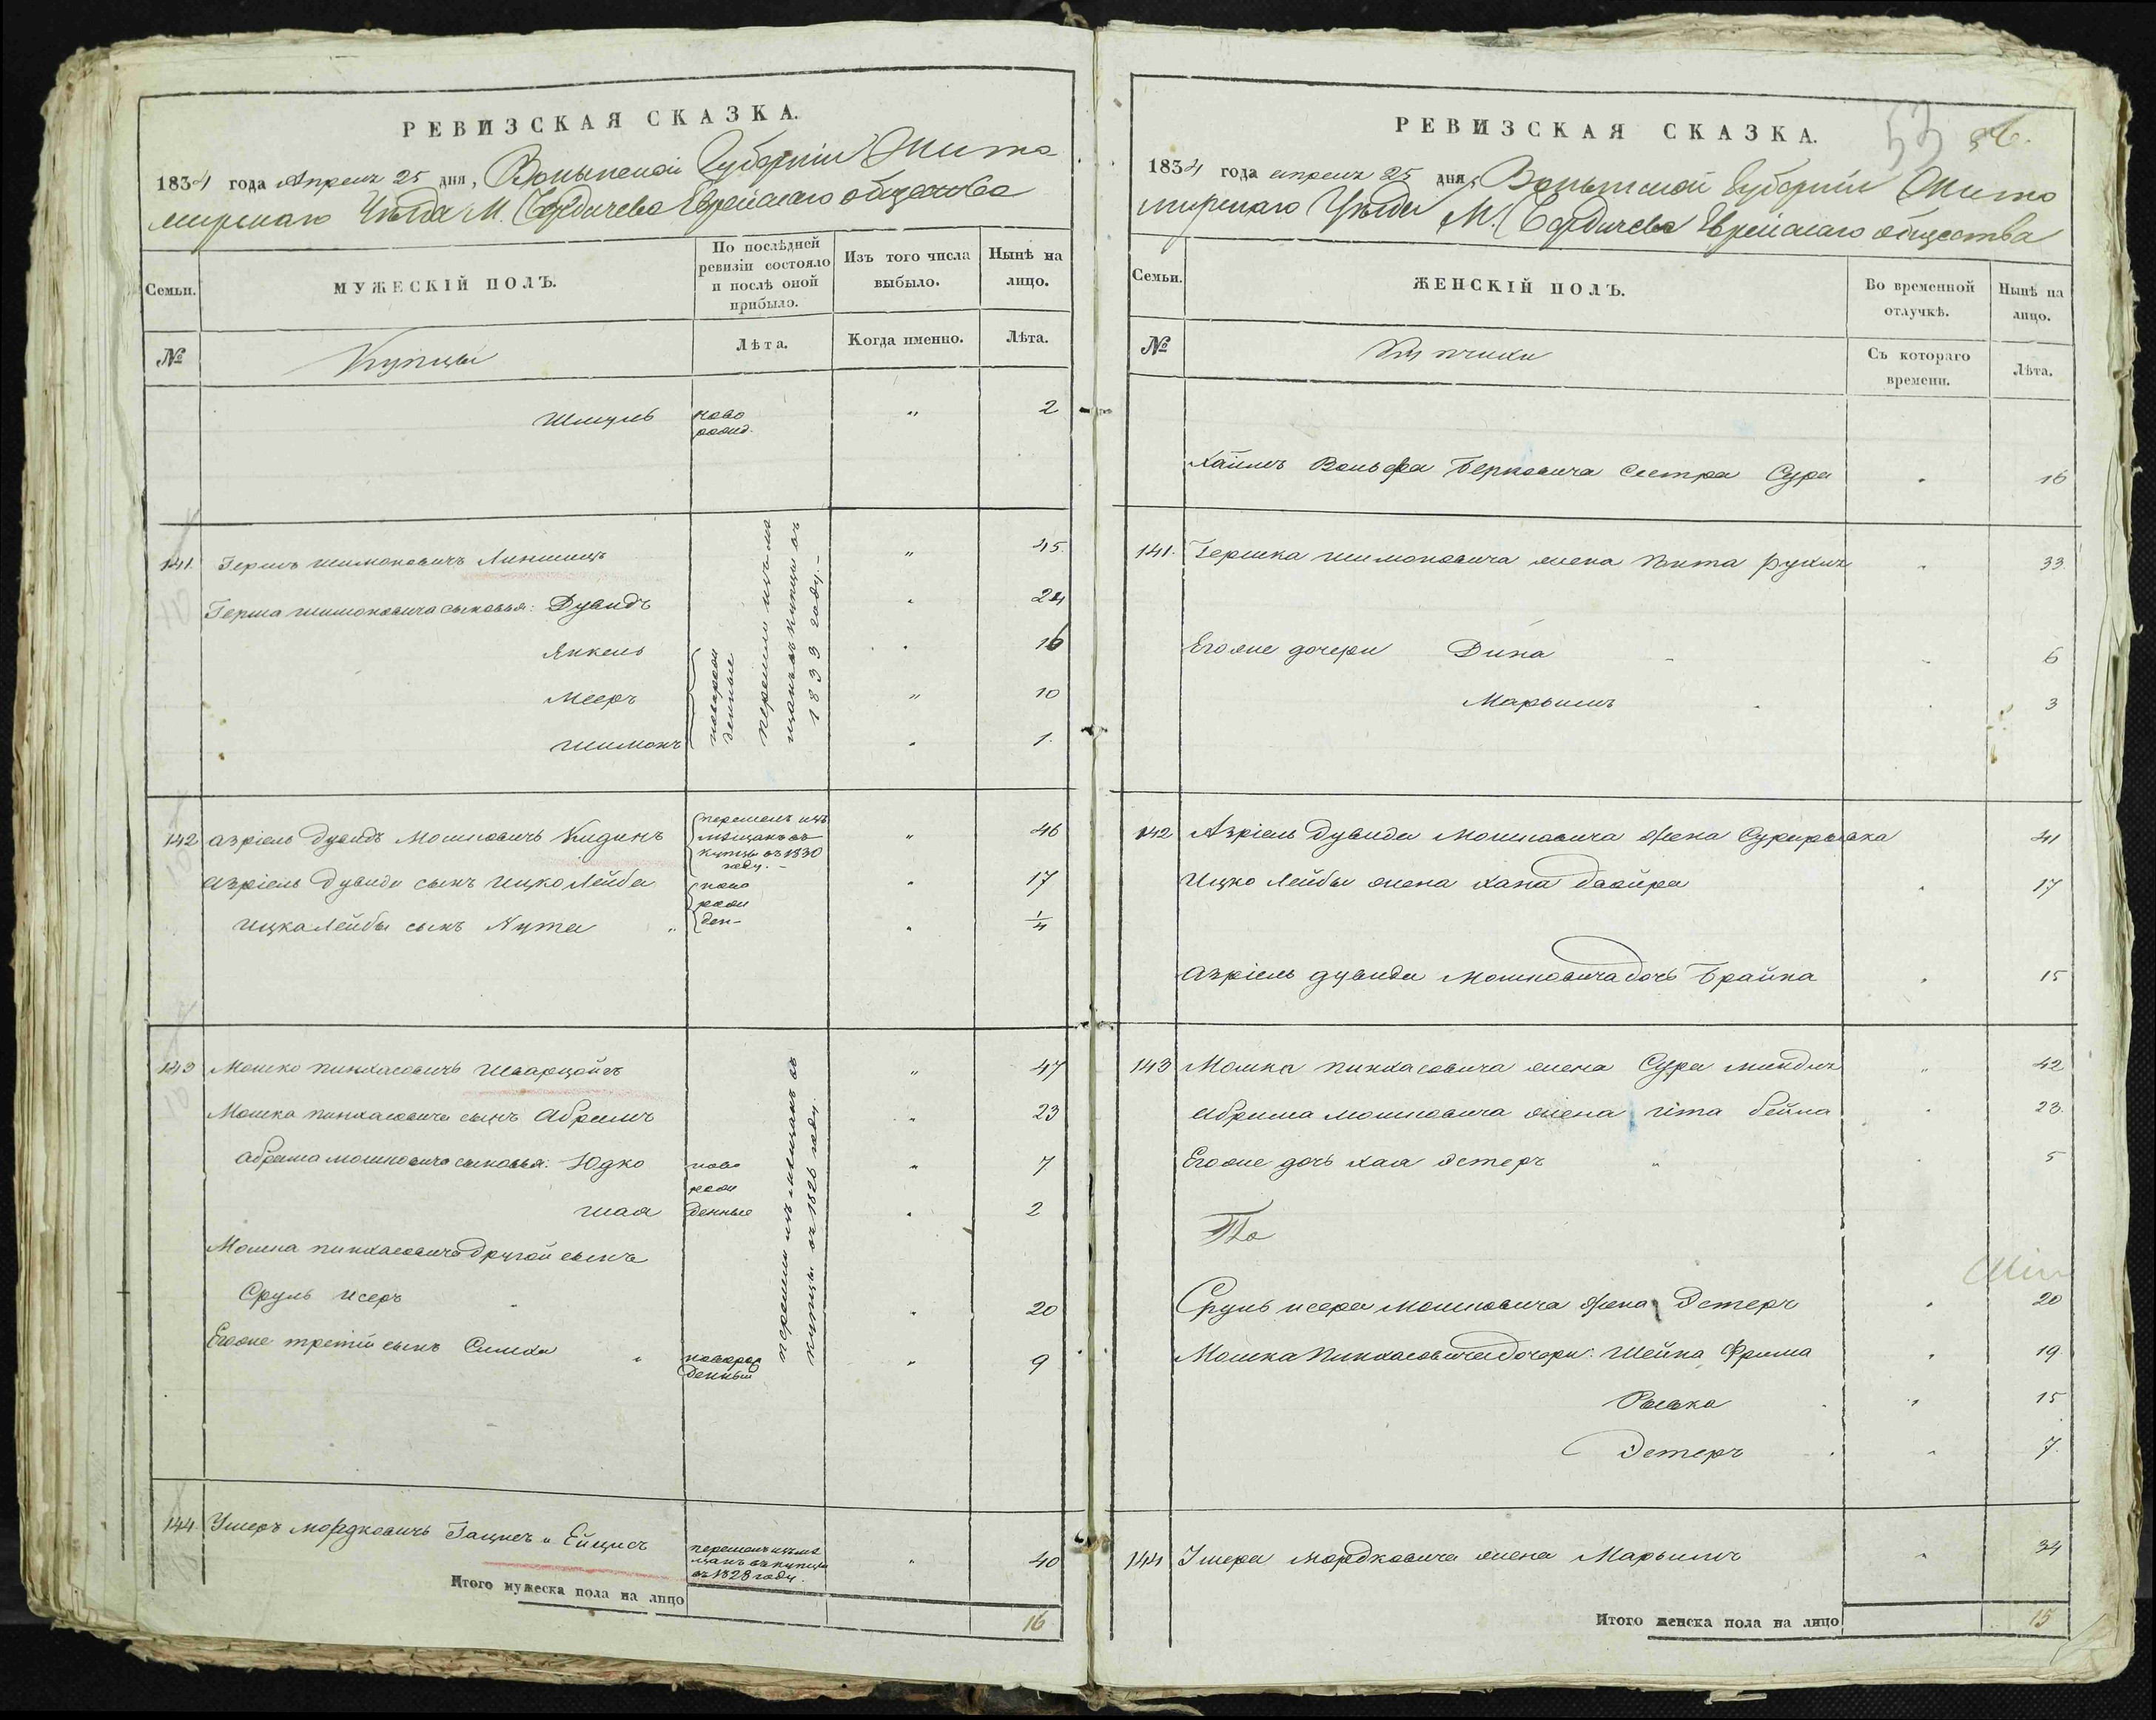 РЕВИЗСКАЯ СКАЗКА.
1834 года Апреля 25 дня, Волынской Губернии Жито
мирскаго Уѣзда М. Бердичева Еврейскаго общества
Семьи.
МУЖЕСКІЙ ПОЛЪ.
По послѣдней ревизіи состояло и послѣ оной прибыло.
Изъ того числа выбыло.
Нынѣ на лицо.
№
Купцы
Лѣта.
Когда именно.
Лѣта.
Шмуль ново рожд. " 2
141. Гершъ Шимоновичъ " 45
Герша Шимоновича сыновья: Дувидъ " 24
Янкель " 16
Мееръ " 10
Шимонъ " 1
новорож
денные
перешли изъ мѣ
щанъ въ купцы въ
1833 году. –
142 Азріель Дувидъ Мошковичъ Кидинъ " 46
перешелъ изъ
мѣщанъ въ
купцы въ 1830
году. –
Азріель Дувида сынъ Ицко Лейба " 17
Ицка Лейбы сынъ Нута " " 1/4
ново
рож
ден–
143 Мошко Пинхасовичъ " 47
Мошка Пинхасовича сынъ Абрамъ " 23
Абрама Мошковича сыновья: Юдко ново " 7
рож
Шая денные " 2
Мошка Пинхасовича другой сынъ
Сруль Исеръ " " 20
Егоже третій сынъ Симха " новорож " 9
денный
перешли изъ мѣщанъ въ
купцы въ 1826 году.
144. Ушеръ Мордковичъ " 40
перешелъ изъ мѣ
щанъ въ купцы
въ 1828 году.
Итого мужеска пола на лицо 16
РЕВИЗСКАЯ СКАЗКА.
53
1834 года апреля 25 дня, Волынской Губернии Жито
мирскаго Уѣзда М. Бердичева Еврейскаго общества
Семьи.
ЖЕНСКІЙ ПОЛЪ.
Во временной отлучкѣ.
Нынѣ на лицо.
№
Купчихи
Съ котораго времени.
Лѣта.
Хаимъ Вольфа Берковича сестра Сура " 16
141. Гершка Шимоновича жена Рухля " 33
Егоже дочери Дина " 6
Марьямъ " 3
142 Азріель Дувида Мошковича жена 41
Ицко Лейбы жена Хана Двойра " 17
Азріель Дувида Мошковича дочь Брайна " 15
143 Мошка Пинхасовича жена Сура Миндля " 42
Абрама Мошковича жена Гита Бейла " 23
Егоже дочь Хая Эстеръ " " 5
Сруль Исера Мошковича жена Эстеръ " 20
Мошка Пинхасовича дочери: Шейна Фрима " 19
Ривка " 15
Эстеръ " 7
144 Ушера Мордковича жена Марьямъ " 34
Итого женска пола на лицо 15